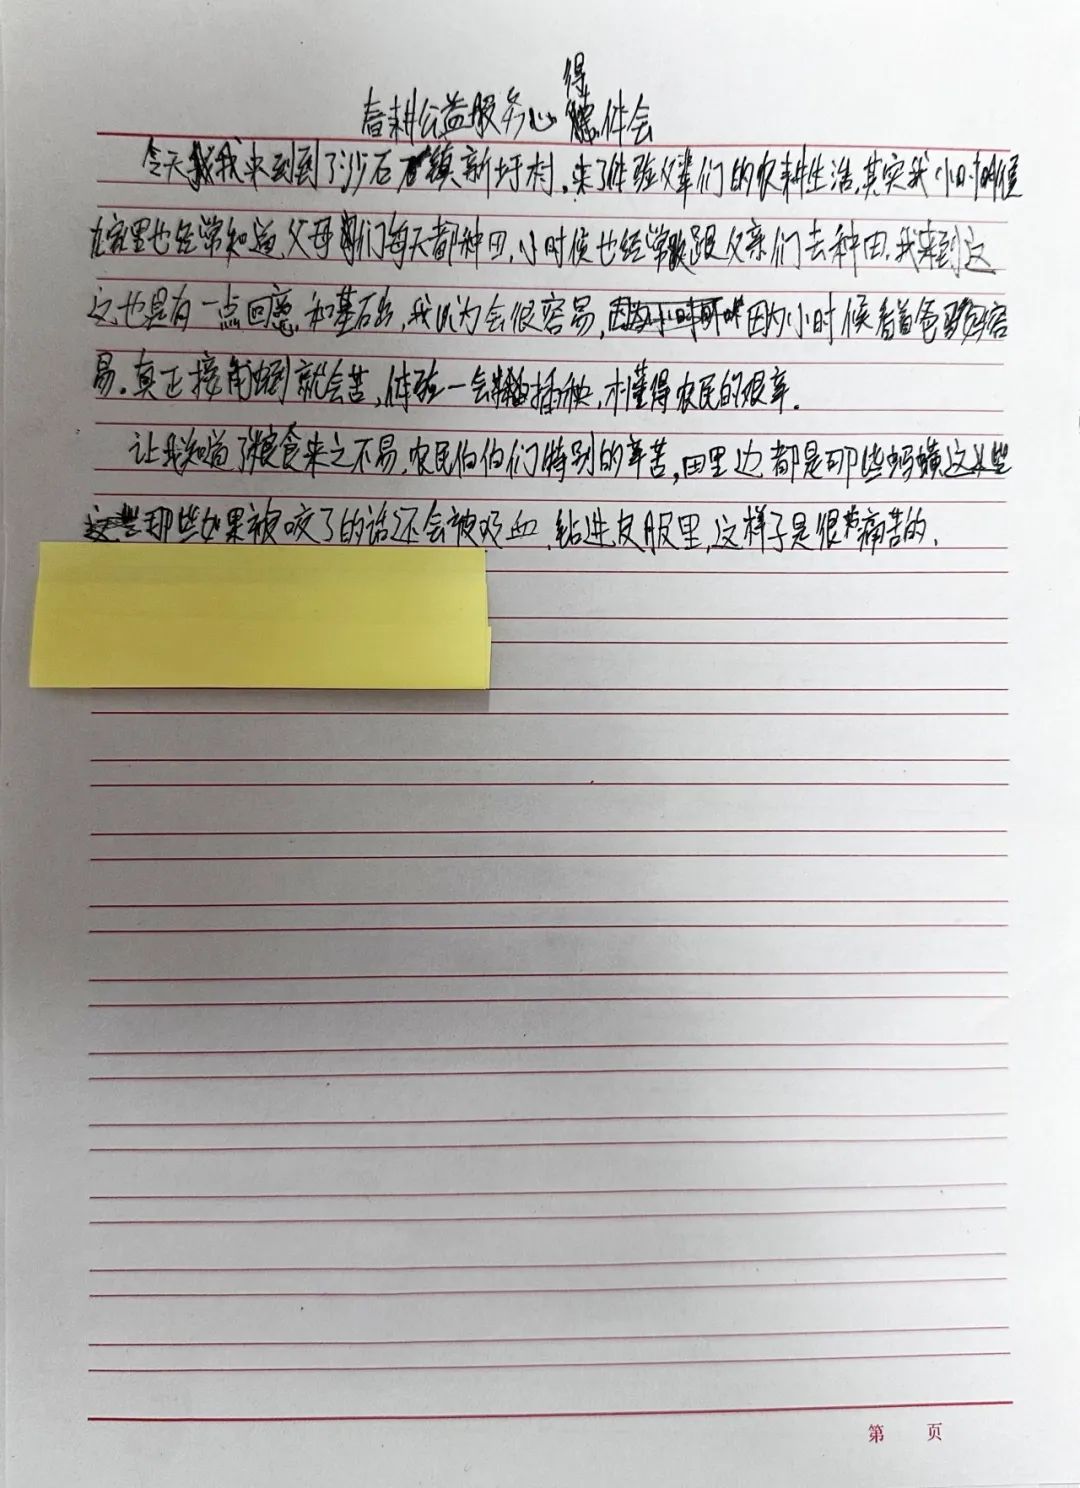 春耕公益服务心得体会
今天我来到到了沙石镇新圩村。来了体验父辈们的农耕生活,其实我小时候
在家里也经常知道,父母们每天都种田,小时候也经常跟父亲们去种田,我来到这
这也是有一点回忆和基础,我以为会很容易,因为小时候看着爸好容
易。真正接触到就会苦,体验一会插秧,才懂得农民的艰辛。
让我知道了粮食来之不易,农民伯伯们特别的辛苦,田里边都是那些蚂蟥这些
那些如果被咬了的话还会被吸血,钻进皮服里,这样子是很痛苦的,
第 页